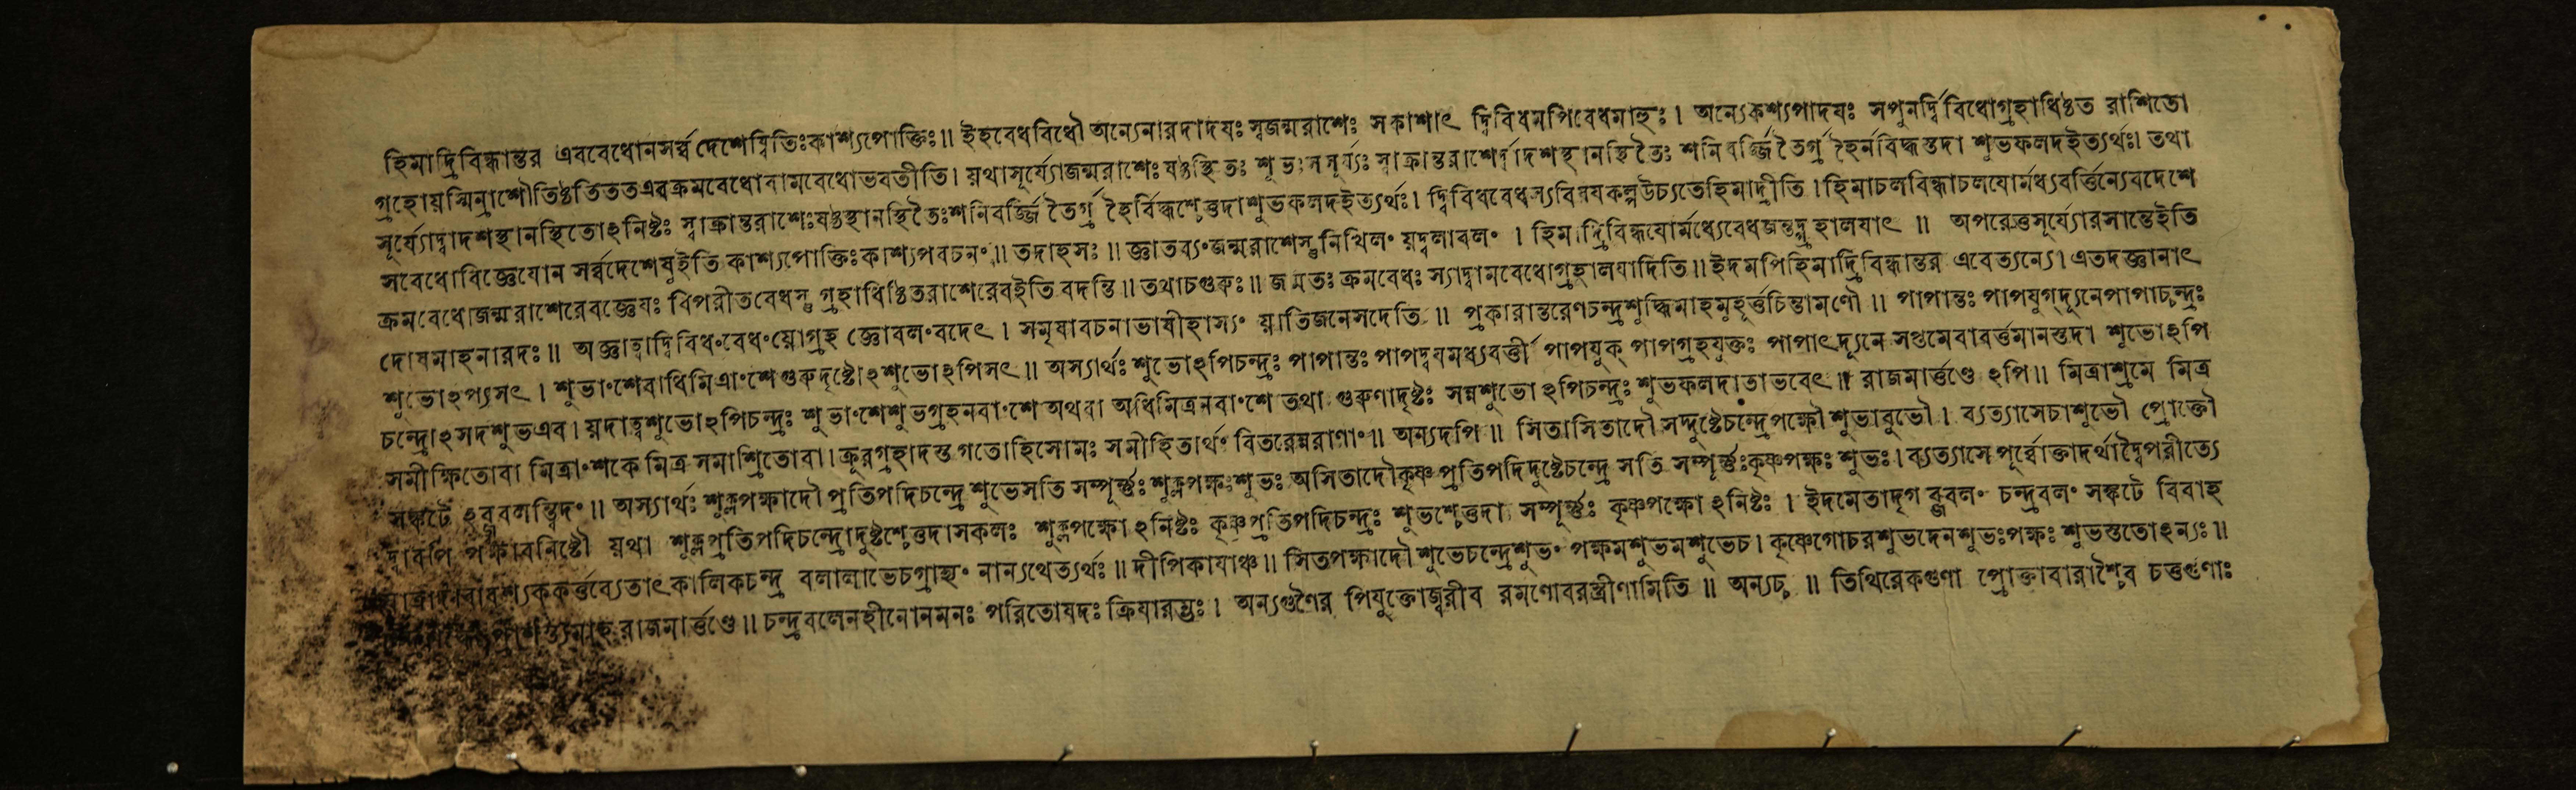 হিমাদ্রিবিন্ধান্তর এববেধোনসর্ব্বদেশেষ্বিতিঃকাশ্যপোক্তিঃ॥ ইহবেধবিধৌ অন্যেনারদাদযঃ স্বজন্মরাশেঃ সকাশাৎ দ্বিবিধমপিবেধমাহুঃ। অন্যেকশ্যপাদযঃ সপুনর্দ্বিবিধোগ্রহাধিষ্ঠত রাশিতো
গ্রহোয়স্মিন্রাশৌতিষ্ঠতিততএবক্রমবেধোবামবেধোভবতীতি। য়থাসূর্য্যোজন্মরাশেঃষষ্ঠস্থিতঃ শুভঃসসূর্য্যঃ স্বাক্রান্তরাশের্দ্বাদশস্থানস্থিতৈঃ শনিবর্জ্জিতৈর্গ্রহৈর্নবিদ্ধস্তদা শুভফলদইত্যর্থঃ। তথা
সূর্য্যোদ্বাদশস্থানস্থিতোঽনিষ্টঃ স্বাক্রান্তরাশেঃষষ্ঠস্থানস্থিতৈঃশনিবর্জ্জিতৈর্গ্রহৈর্বিদ্ধশ্চেত্তদাশুভফলদইত্যর্থঃ। দ্বিবিধবেধস্যবিষযকল্পউচ্যতেহিমাদ্রীতি। হিমাচলবিন্ধাচলযোর্মধ্যবর্ত্তিন্যেবদেশে
সবেধোবিজ্ঞেযোন সর্ব্বদেশেষুইতি কাশ্যপোক্তিঃকাশ্যপবচনং॥ তদাহসঃ॥ জ্ঞাতব্যংজন্মরাশেস্তুনিখিলং য়দ্বলাবলং। হিমাদ্রিবিন্ধযোর্মধ্যেবেধজন্তদ্গ্রহালযাৎ॥ অপরেত্তসূর্য্যোরসান্তেইতি
ক্রমবেধোজন্মরাশেরেবজ্ঞেযঃ বিপরীতবেধস্তু গ্রহাধিষ্ঠিতরাশেরেবইতি বদন্তি॥ তথাচগুরুঃ॥ জন্মতঃ ক্রমবেধঃ স্যাদ্বামবেধোগ্রহালযাদিতি॥ ইদমপিহিমাদ্রিবিন্ধান্তর এবেত্যন্যে। এতদজ্ঞানাৎ
দোষমাহনারদঃ॥ অজ্ঞাত্বাদ্বিবিধংবেধংয়োগ্রহ জ্ঞোবলংবদেৎ। সমৃষাবচনাভাষীহাস্যং য়াতিজনেসদেতি॥ প্রকারান্তরেণচন্দ্রশুদ্ধিমাহমুহূর্ত্তচিন্তামণৌ॥ পাপান্তঃ পাপযুগ্দ্যূনেপাপাচ্চন্দ্রঃ
শুভোঽপ্যসৎ। শুভাংশেবাধিমিত্রাংশেগুরুদৃষ্টোঽশুভোঽপিসৎ॥ অস্যার্থঃ শুভোঽপিচন্দ্রঃ পাপান্তঃ পাপদ্বযমধ্যবর্ত্তী পাপযুক্ পাপগ্রহযুক্তঃ পাপাৎদ্যূনে সপ্তমেবাবর্ত্তমানস্তদা শুভোঽপি
চন্দ্রোঽসদশুভএব। য়দাত্বশুভোঽপিচন্দ্রঃ শুভাংশেশুভগ্রহনবাংশে অথবা অধিমিত্রনবাংশে তথা গুরুণাদৃষ্টঃ সন্নশুভোঽপিচন্দ্রঃ শুভফলদাতাভবেৎ॥ রাজমার্ত্তণ্ডেঽপি॥ মিত্রাশ্রমে মিত্র
সমীক্ষিতোবা মিত্রাংশকে মিত্র সমাশ্রিতোবা। ক্রূরগ্রহাদস্তগতোহিসোমঃ সমীহিতার্থং বিতরেন্নরাণাং॥ অন্যদপি॥ সিতাসিতাদৌ সদ্দুষ্টেচন্দ্রেপক্ষৌ শুভাবুভৌ। ব্যত্যাসেচাশুভৌ প্রোক্তৌ
সঙ্কটেঽব্জবলন্ত্বিদং॥ অস্যার্থঃ শুক্লপক্ষাদৌ প্রতিপদিচন্দ্রে শুভেসতি সম্পূর্ণ্ণঃ শুক্লপক্ষঃশুভঃ অসিতাদৌকৃষ্ণপ্রতিপদিদুষ্টেচন্দ্রে সতি সম্পূর্ণ্ণঃকৃষ্ণপক্ষঃ শুভঃ। ব্যত্যাসে পূর্ব্বোক্তাদর্থাদ্বৈপরীত্যে
দ্বাবপি পক্ষাবনিষ্টৌ য়থা শুক্লপ্রতিপদিচন্দ্রোদুষ্টশ্চেত্তদাসকলঃ শুক্লপক্ষোঽনিষ্টঃ কৃষ্ণপ্রতিপদিচন্দ্রঃ শুভশ্চেত্তদা সম্পূর্ণ্ণঃ কৃষ্ণপক্ষোঽনিষ্টঃ। ইদমেতাদৃগব্জবলং চন্দ্রবলং সঙ্কটে বিবাহ
যাত্রাদাবাবশ্যককর্ত্তব্যেতাৎকালিকচন্দ্র বলালাভেচগ্রাহ্যং নান্যথেত্যর্থঃ॥ দীপিকাযাঞ্চ॥ সিতপক্ষাদৌ শুভেচন্দ্রেশুভং পক্ষমশুভমশুভেচ। কৃষ্ণেগোচরশুভদেনশুভঃপক্ষঃ শুভস্ততোঽন্যঃ॥
রাজমার্ত্তণ্ডে॥ চন্দ্রবলেনহীনোনমনঃ পরিতোষদঃ ক্রিযারম্ভঃ। অন্যগুণৈর পিযুক্তোজ্বরীব রমণোবরস্ত্রীণামিতি॥ অন্যচ্চ॥ তিথিরেকগুণা প্রোক্তাবারাশ্চৈব চতুর্গুণাঃ